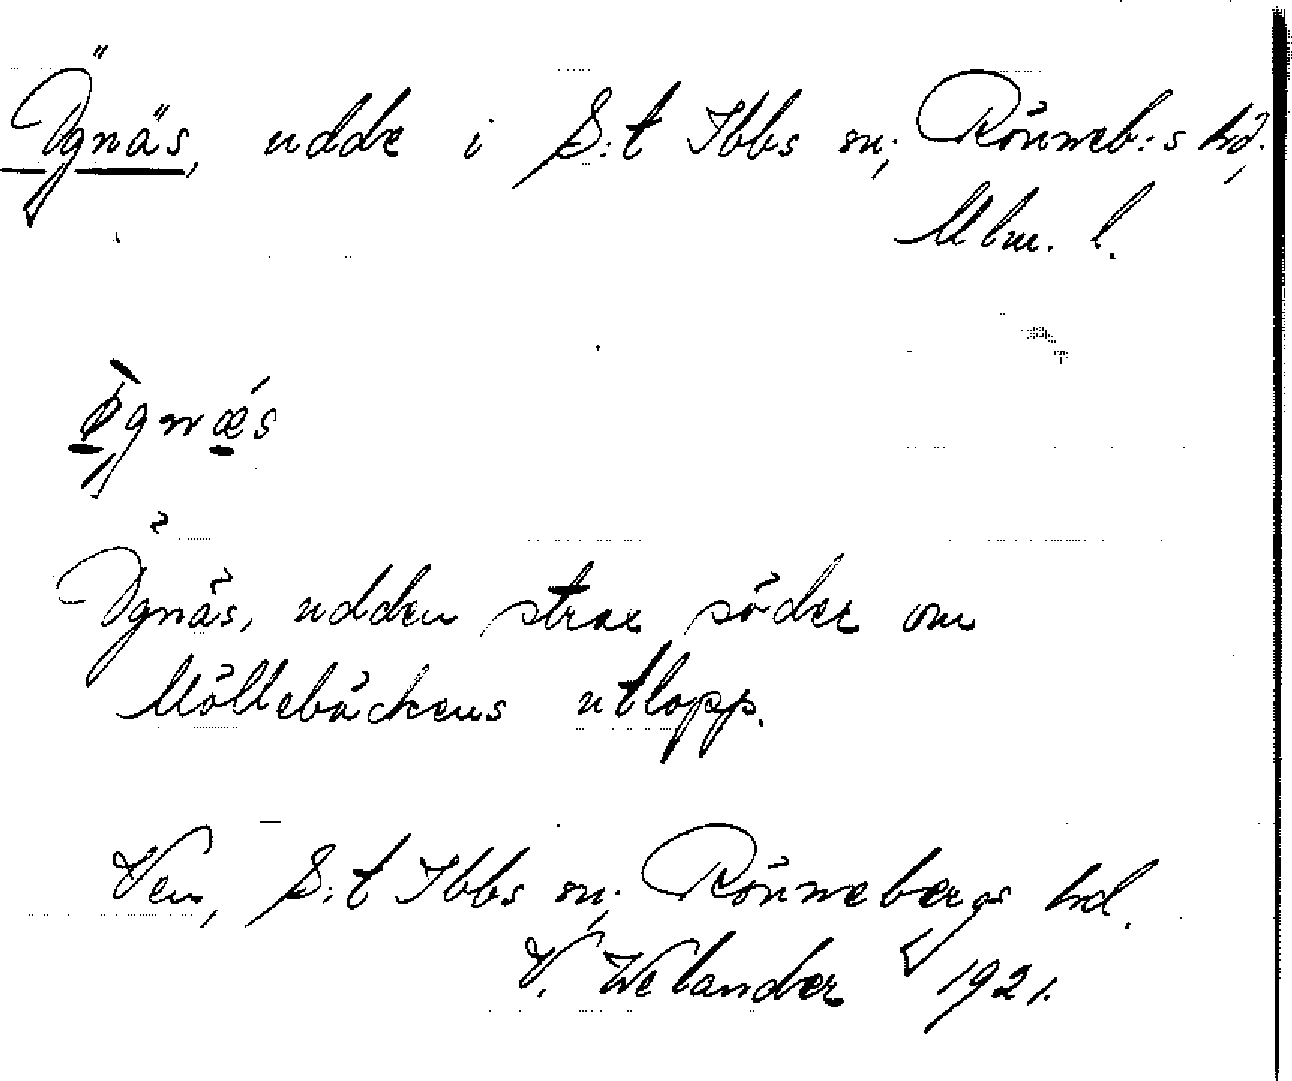 Ÿgnäs, udde i S:t Ibbs sn; Rönneb:s hd.,
Mlm. l.
ø̀gnǽs
Ÿgnäs, udden strax söder om
Möllebäckens utlopp.
Ven, S:t Ibbs sn; Rönnebergs hd.
V. Welander 1921.